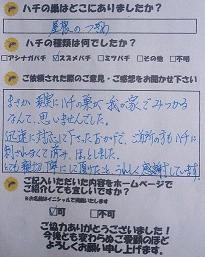 ハチの巣はどこにありましたか?
屋根のつぎめ
ハチの種類は何でしたか?
□アシナガバチ ☑スズメバチ □ミツバチ □その他 □不明
ご依頼された際のご意見・ご感想をお聞かせ下さい
まさか、現実にハチの巣が、我が家でみつかる
なんて、思いませんでした。
迅速に対応して下さったおかげで、ご近所の方もハチに
刺されなくて済み、ほっとしました。
とても親切、丁寧にして頂けたことも、うれしく感謝しています。
ご記入いただいた内容をホームページで
ご紹介しても宜しいですか?
☑可 □不可
ご協力ありがとうございました!
今後とも変わらぬご愛顧のほど
よろしくお願い申し上げます。